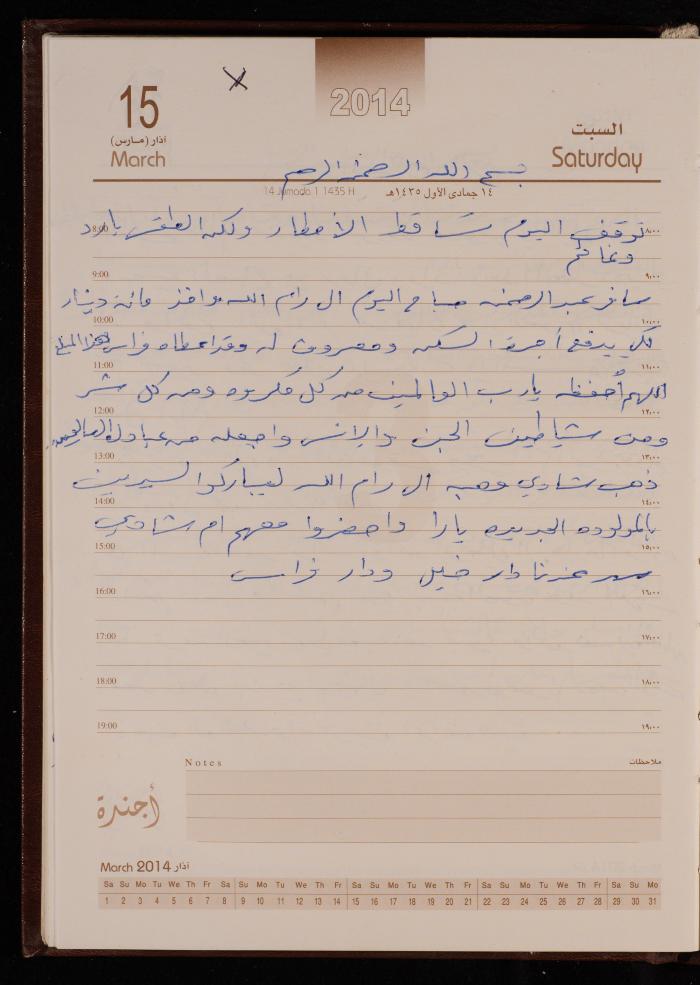 2014
15
آذار (مارس)
March
السبت
Saturday
بسم الله الرحمن الرحيم
14 Jumada 1 1435 H
١٤ جمادى الأول ١٤٣٥هـ
8:00 توقف اليوم تساقط الأمطار ولكن الطقس بارد ٨:٠٠
وغائم
9:00 ٩:٠٠
سافر عبد الرحمن صباح اليوم الى رام الله واخذ مائة دينار
10:00 ١٠:٠٠
لكي يدفع أجرة السكن ومصروف له وقد اعطاه فراس هذا المبلغ
11:00 ١١:٠٠
اللهم أحفظه يارب العالمين من كل مكروه ومن كل شر
12:00 ١٢:٠٠
ومن شياطين الجن والإنس واجعله من عبادك الصالحين
13:00 ١٣:٠٠
ذهب شادي وهبه الى رام الله ليباركوا لسيرين
14:00 ١٤:٠٠
بالمولوده الجديده يارا واحضروا معهم ام شادي
15:00 ١٥:٠٠
عندنا دار خليل ودار فراس
16:00 ١٦:٠٠
17:00 ١٧:٠٠
18:00 ١٨:٠٠
19:00 ١٩:٠٠
Notes
ملاحظات
أجندة
March 2014 آذار
Sa Su Mo Tu We Th Fr Sa Su Mo Tu We Th Fr Sa Su Mo Tu We Th Fr Sa Su Mo Tu We Th Fr Sa Su Mo
1 2 3 4 5 6 7 8 9 10 11 12 13 14 15 16 17 18 19 20 21 22 23 24 25 26 27 28 29 30 31